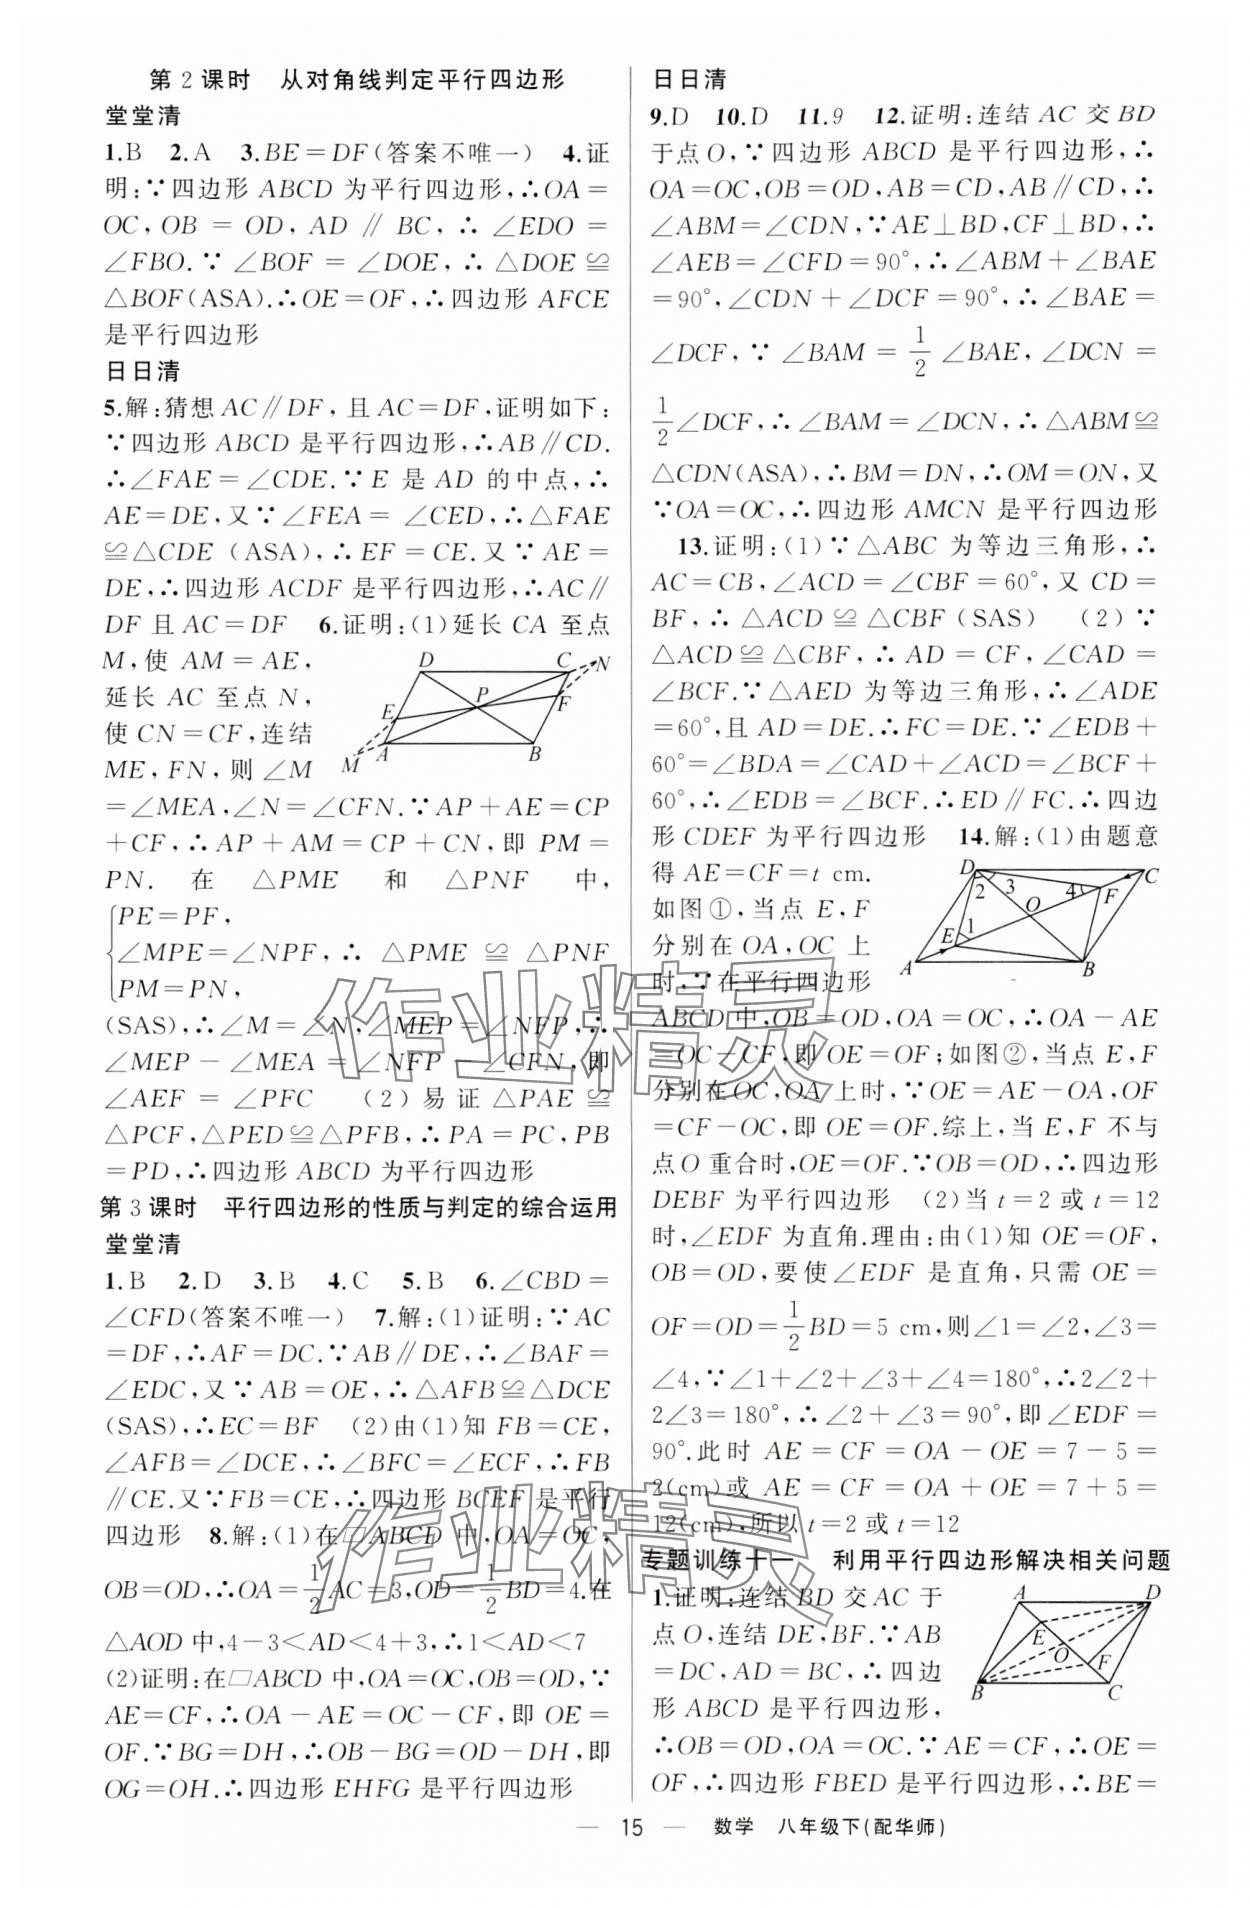 第 2 课时　从对角线判定平行四边形
堂堂清
1.B　2.A　3.BE=DF(答案不唯一)　4.证
明:∵四边形 ABCD 为平行四边形,∴OA=
OC,OB = OD, AD // BC, ∴ ∠EDO =
∠FBO.∵ ∠BOF = ∠DOE, ∴ △DOE ≌
△BOF(ASA).∴OE=OF,∴四边形 AFCE
是平行四边形
日日清
5.解:猜想 AC∥DF, 且 AC=DF,证明如下:
∵四边形 ABCD 是平行四边形,∴AB∥CD.
∴∠FAE=∠CDE.∵E 是 AD 的中点,∴
AE=DE,又∵∠FEA= ∠CED,∴△FAE
≌△CDE (ASA),∴EF=CE.又∵AE=
DE,∴四边形 ACDF 是平行四边形,∴AC∥
DF 且 AC=DF　6.证明:(1)延长 CA 至点
M,使 AM=AE,
延长 AC 至点 N,
使 CN=CF,连结
ME,FN,则∠M
D C N P E F A B M
=∠MEA,∠N=∠CFN.∵AP+AE=CP
+CF,∴AP+AM=CP+CN,即 PM=
PN. 在 △PME 和 △PNF 中,
PE=PF,
∠MPE=∠NPF, ∴ △PME ≌ △PNF
PM=PN,
(SAS),∴∠M=∠N,∠MEP=∠NFP,∴
∠MEP-∠MEA=∠NFP-∠CFN,即
∠AEF = ∠PFC　(2) 易 证 △PAE≌
△PCF,△PED≌△PFB,∴PA=PC,PB
=PD,∴四边形 ABCD 为平行四边形
第 3 课时　平行四边形的性质与判定的综合运用
堂堂清
1.B　2.D　3.B　4.C　5.B　6.∠CBD=
∠CFD(答案不唯一)　7.解:(1)证明:∵AC
=DF,∴AF=DC.∵AB∥DE,∴∠BAF=
∠EDC,又∵AB=OE,∴△AFB≌△DCE
(SAS),∴EC=BF　(2)由(1)知 FB=CE,
∠AFB=∠DCE,∴∠BFC=∠ECF,∴FB
∥CE.又∵FB=CE,∴四边形 BCEF 是平行
四边形　8.解:(1)在▱ABCD 中,OA=OC,
OB=OD,∴OA=1/2AC=3,OD=1/2BD=4.在
△AOD 中,4-3<AD<4+3,∴1<AD<7
(2)证明:在▱ABCD 中,OA=OC,OB=OD,∵
AE=CF,∴OA-AE=OC-CF,即 OE=
OF.∵BG=DH,∴OB-BG=OD-DH,即
OG=OH.∴四边形 EHFG 是平行四边形
日日清
9.D　10.D　11.9　12.证明:连结 AC 交 BD
于点 O,∵四边形 ABCD 是平行四边形,∴
OA=OC,OB=OD,AB=CD,AB∥CD,∴
∠ABM=∠CDN,∵AE⊥BD,CF⊥BD,∴
∠AEB=∠CFD=90°,∴∠ABM+∠BAE
=90°,∠CDN+∠DCF=90°,∴∠BAE=
∠DCF,∵ ∠BAM = 1/2 ∠BAE,∠DCN =
1/2∠DCF,∴∠BAM=∠DCN,∴△ABM≌
△CDN(ASA),∴BM=DN,∴OM=ON,又
∵OA=OC,∴四边形 AMCN 是平行四边形
13.证明:(1)∵△ABC 为等边三角形,∴
AC=CB,∠ACD=∠CBF=60°,又 CD=
BF,∴ △ACD ≌ △CBF (SAS)　(2) ∵
△ACD≌△CBF,∴AD=CF,∠CAD=
∠BCF.∵△AED 为等边三角形,∴∠ADE
=60°,且 AD=DE.∴FC=DE.∵∠EDB+
60°=∠BDA=∠CAD+∠ACD=∠BCF+
60°,∴∠EDB=∠BCF.∴ED∥FC.∴四边
形 CDEF 为平行四边形　14.解:(1)由题意
得 AE=CF=t cm.
如图①,当点 E,F
分别在 OA,OC 上
时,∵在平行四边形
D C 2 3 4 F O E 1 A B
ABCD 中,OB=OD,OA=OC,∴OA-AE
=OC-CF,即 OE=OF;如图②,当点 E,F
分别在 OC,OA 上时,∵OE=AE-OA,OF
=CF-OC,即 OE=OF.综上,当 E,F 不与
点 O 重合时,OE=OF.∵OB=OD,∴四边形
DEBF 为平行四边形　(2)当 t=2 或 t=12
时,∠EDF 为直角.理由:由(1)知 OE=OF,
OB=OD,要使∠EDF 是直角,只需 OE=
OF=OD=1/2BD=5 cm,则∠1=∠2,∠3=
∠4,∵∠1+∠2+∠3+∠4=180°,∴2∠2+
2∠3=180°,∴∠2+∠3=90°,即∠EDF=
90°.此时 AE=CF=OA-OE=7-5=
2(cm)或 AE=CF=OA+OE=7+5=
12(cm),所以 t=2 或 t=12
专题训练十一　利用平行四边形解决相关问题
1.证明:连结 BD 交 AC 于
点 O,连结 DE,BF.∵AB
=DC,AD=BC,∴四边
形 ABCD 是平行四边形,
A D E O F B C
∴OB=OD,OA=OC.∵AE=CF,∴OE=
OF,∴四边形 FBED 是平行四边形,∴BE=
— 15 —　数学　八年级下(配华师)
作业精灵
作业精灵